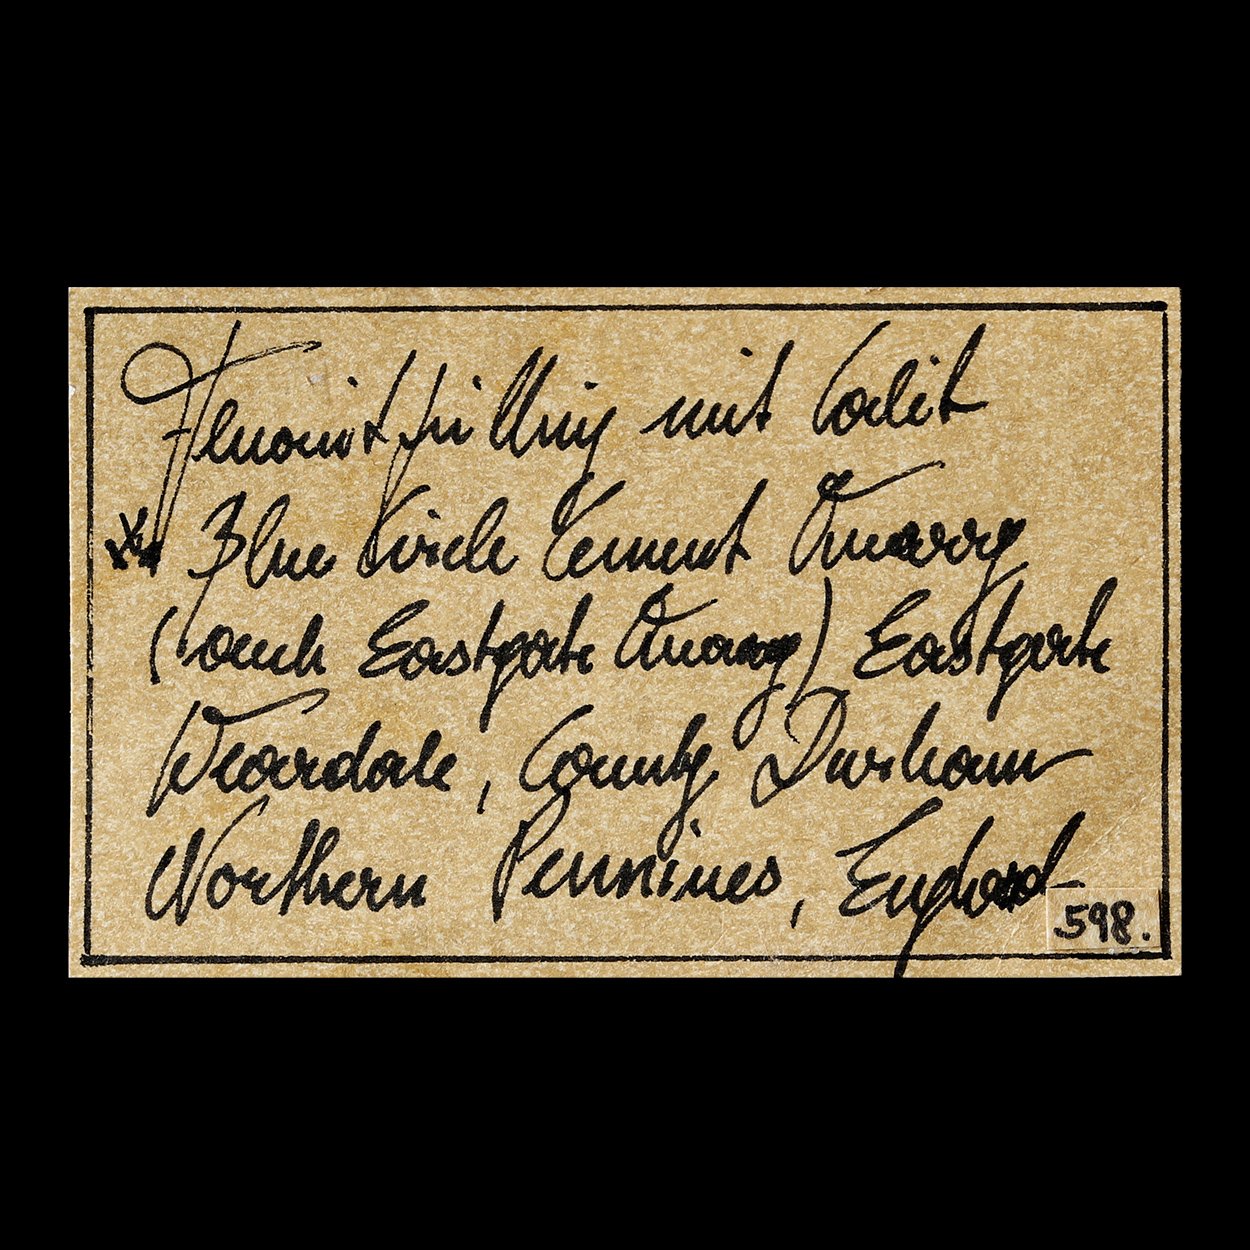 Fluoritzwilling mit Calcit
Blue Circle Cement Quarry
(auch Eastgate Quarry) Eastgate
Weardale, County Durham
Northern Pennines, England
598.